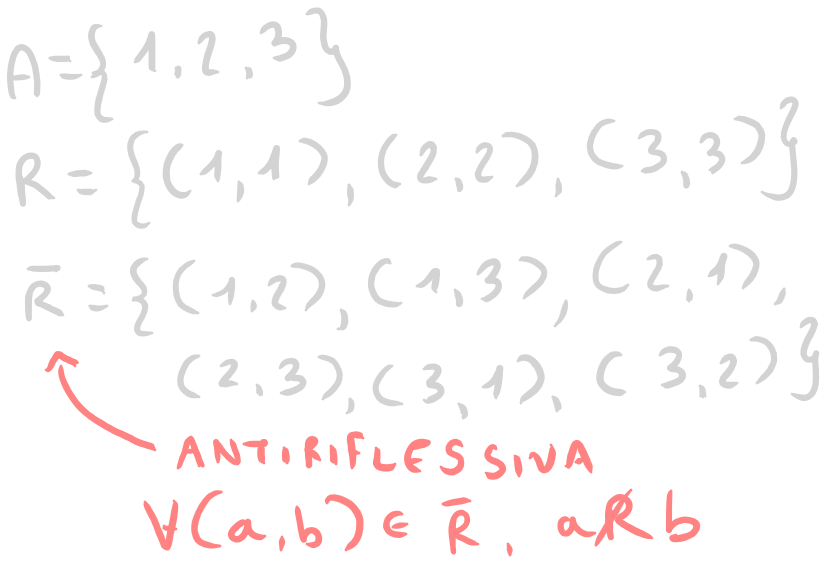 A={1,2,3}
R={(1,1),(2,2),(3,3)}
R̅={(1,2),(1,3),(2,1),
(2,3),(3,1),(3,2)}
ANTIRIFLESSIVA
∀(a,b)∈R̅, aR̸b